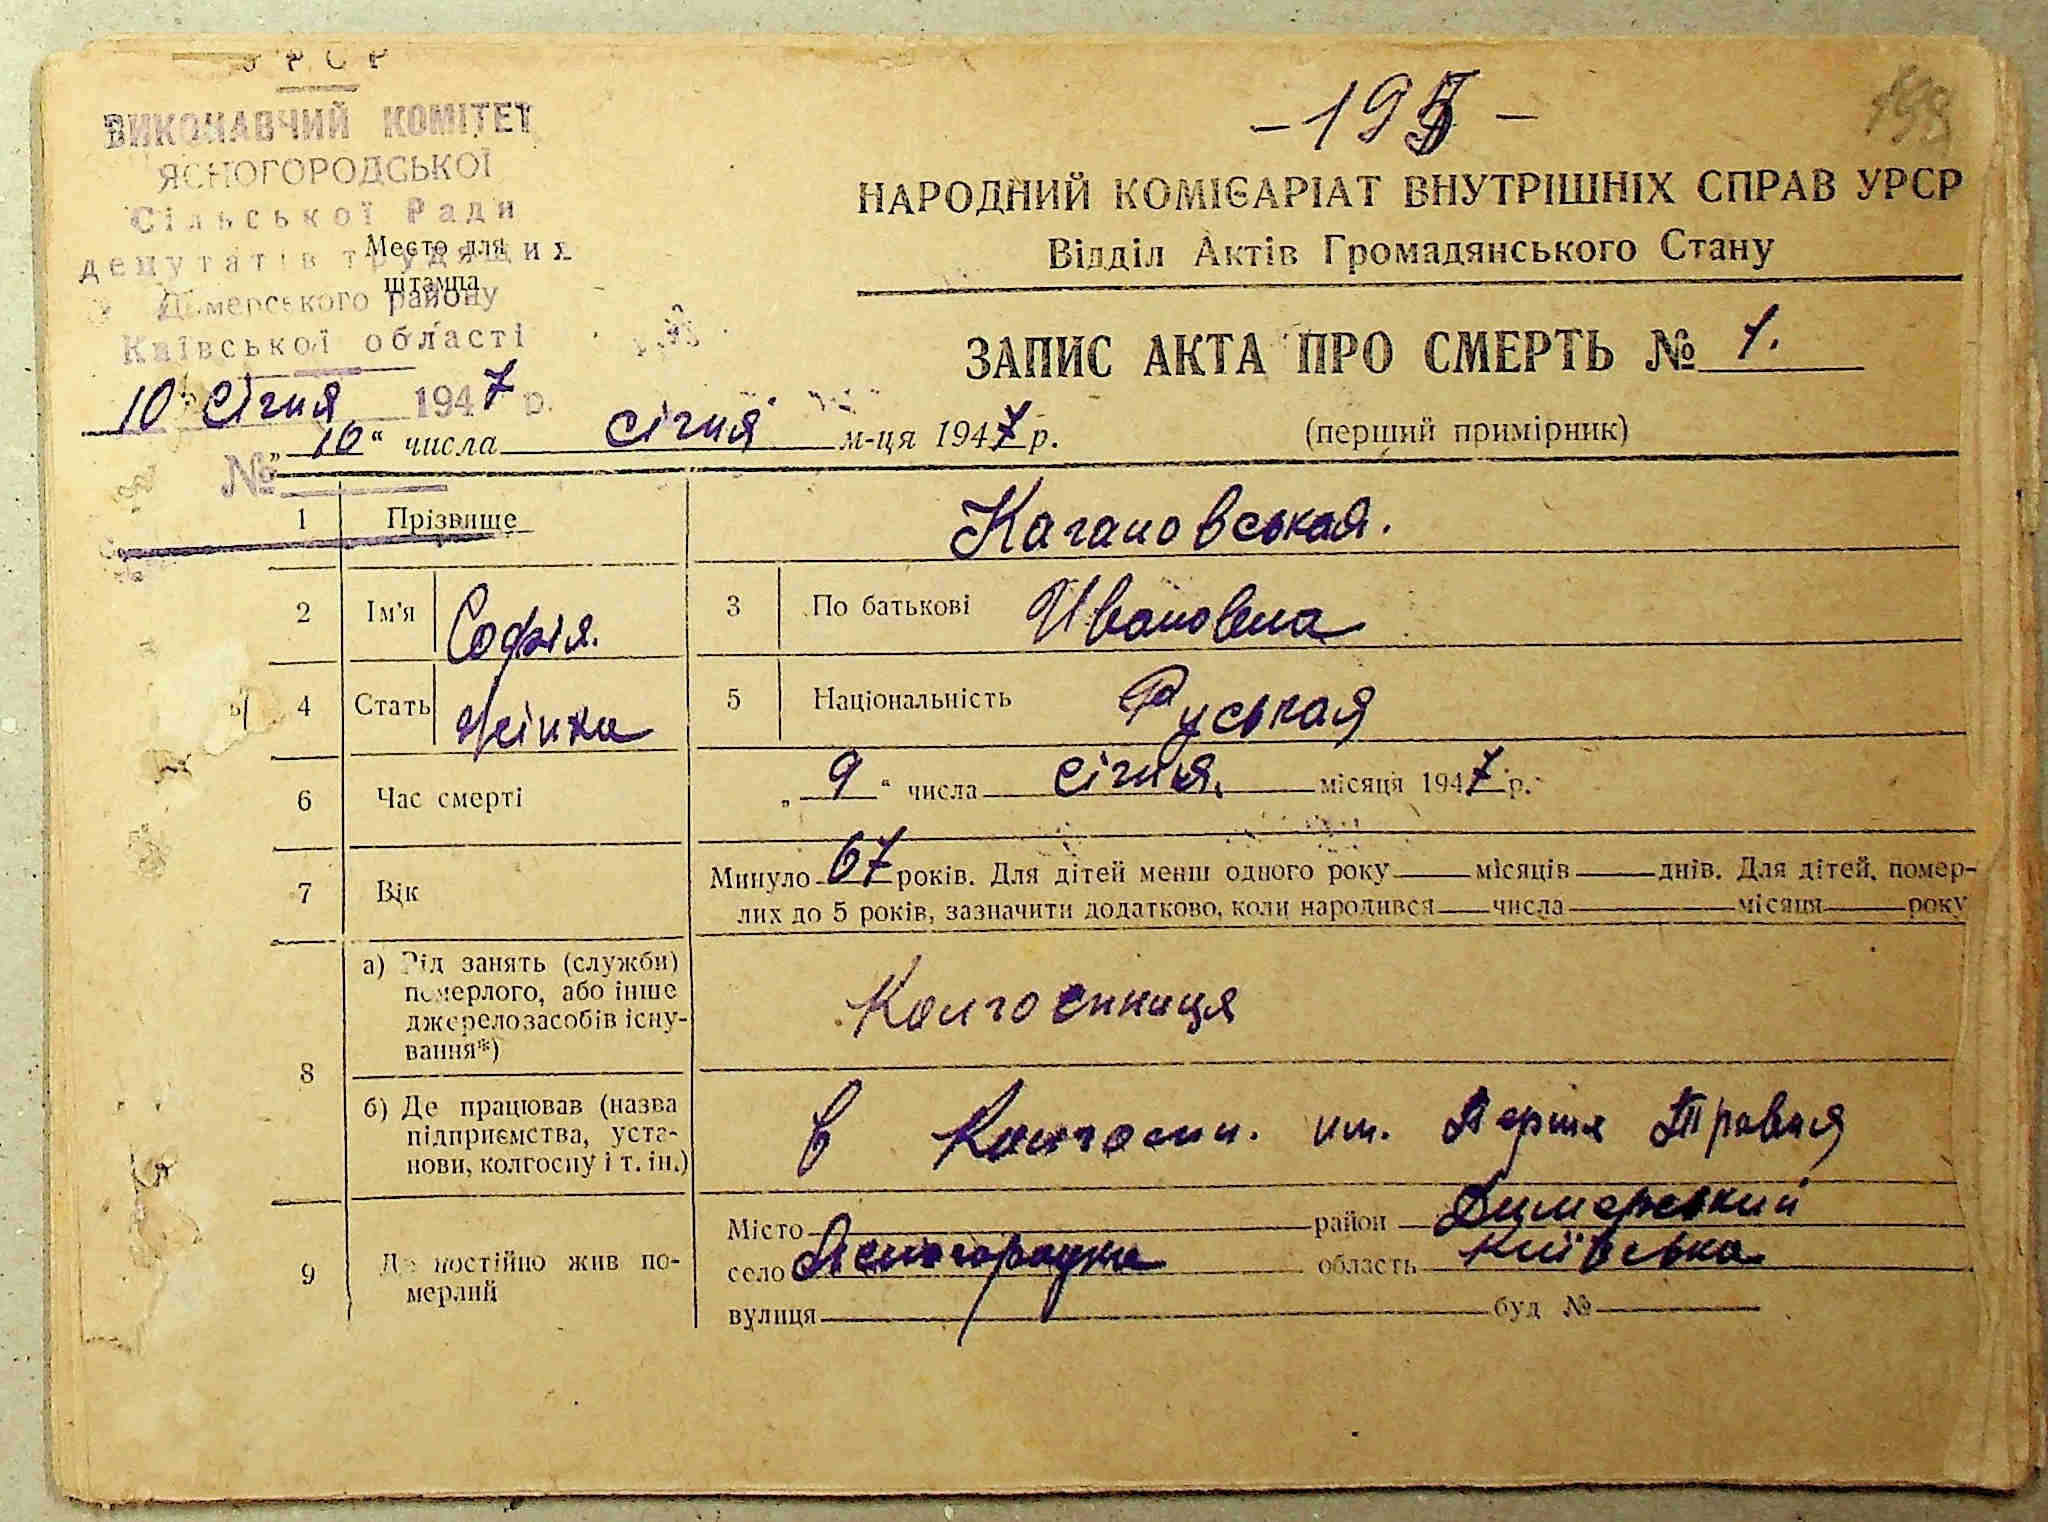 УРСР
ВИКОНАВЧИЙ КОМІТЕТ
ЯСНОГОРОДСЬКОЇ
Сільської Ради
депутатів трудящих
Димерського району
Київської області
Место для
штампа
10 Січня 1947 р.
№
198
НАРОДНИЙ КОМІСАРІАТ ВНУТРІШНІХ СПРАВ УРСР
Відділ Актів Громадянського Стану
ЗАПИС АКТА ПРО СМЕРТЬ № 1.
„10“ числа січня м-ця 1947 р. (перший примірник)
1 Прізвище Кагановськая.
2 Ім'я Софія. 3 По батькові Ивановна
4 Стать жінка 5 Національність Руськая
6 Час смерті „9“ числа січня, місяця 1947 р.
7 Вік Минуло 67 років. Для дітей менш одного року місяців днів. Для дітей, помер-
лих до 5 років, зазначити додатково, коли народився числа місяця року
8 а) Рід занять (служби)
померлого, або інше
джерело засобів існу-
вання*)
Колгоспниця
б) Де працював (назва
підприємства, уста-
нови, колгоспу і т. ін.)
в Колгосп. им. Перше Травня
9 Де постійно жив по-
мерлий
Місто район Димерський
село Ясногородка область Київська
вулиця буд №